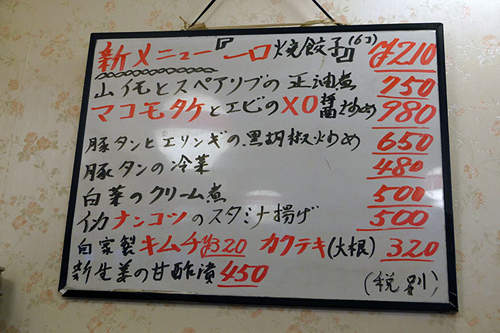 新メニュー『一口焼餃子』(6コ) ¥210
山イモとスペアリブの正油煮 750
マコモタケとエビのXO醤炒め 980
豚タンとエリンギの黒胡椒炒め 650
豚タンの冷菜 480
白菜のクリーム煮 500
イカナンコツのスタミナ揚げ 500
自家製キムチ¥320 カクテキ(大根) 320
新生姜の甘酢漬 450 (税別)